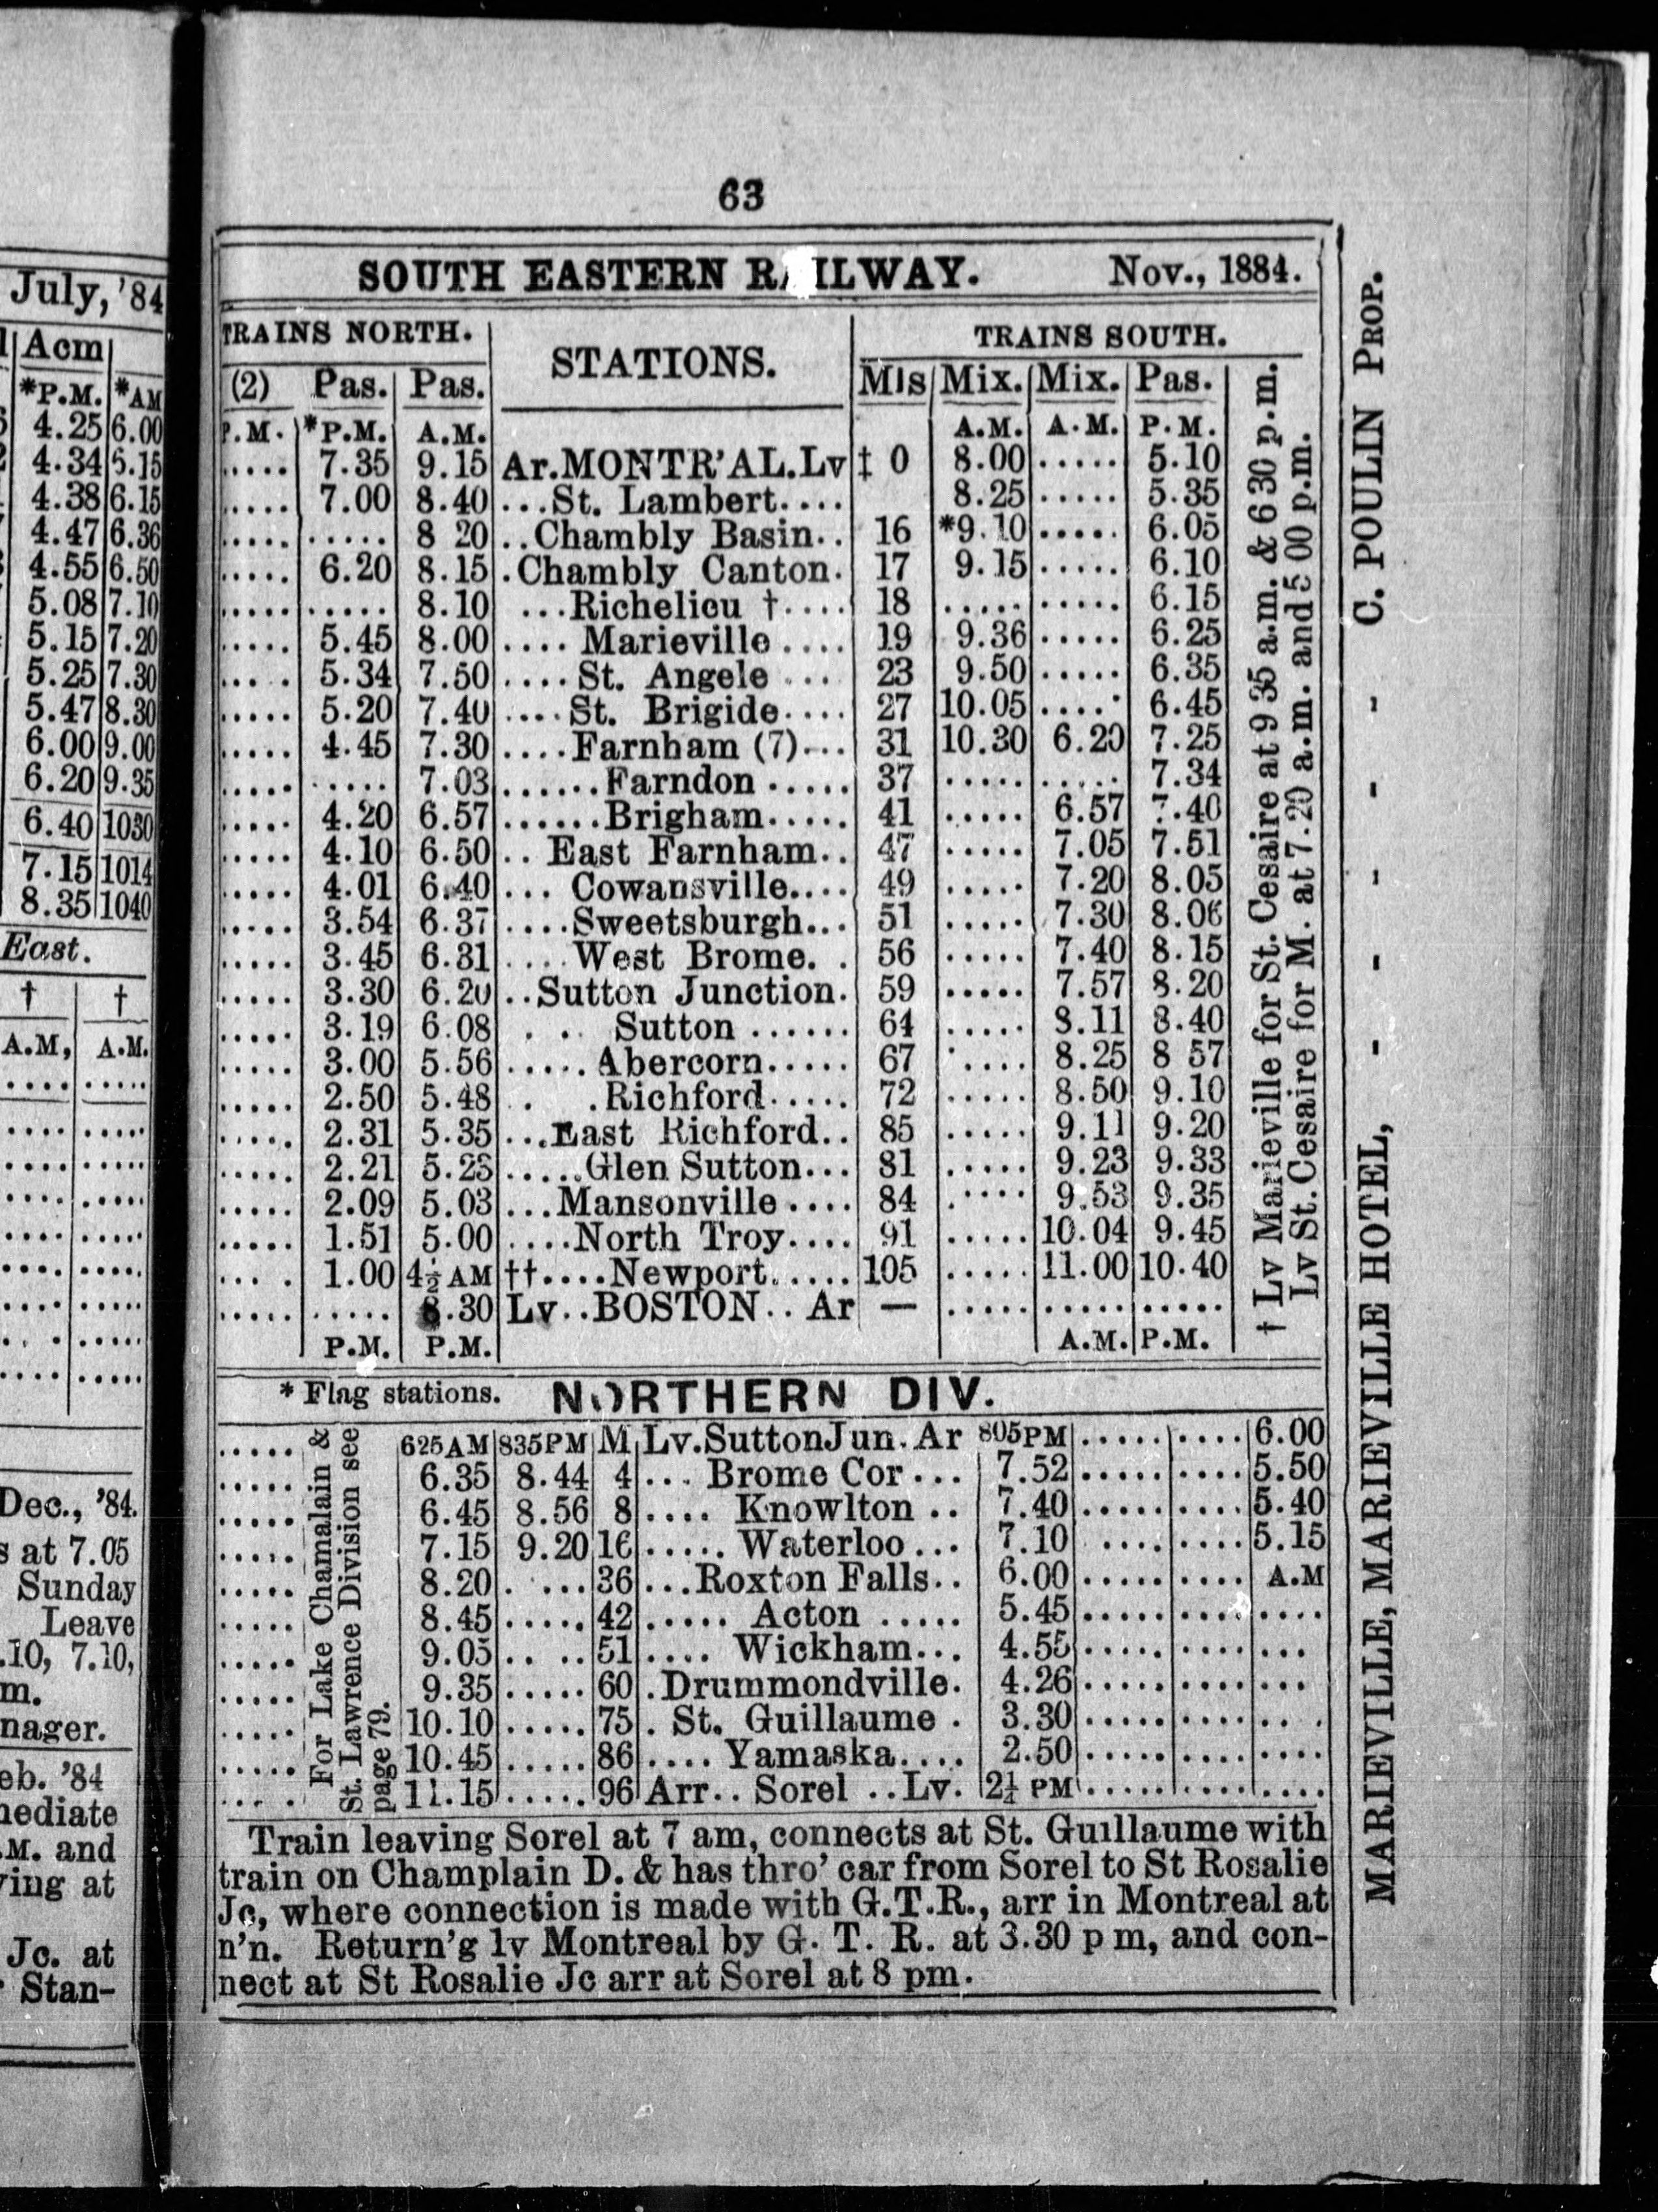 July, '84
Acm
*P.M. *AM
4.25 6.00
4.34 6.15
4.38 6.15
4.47 6.36
4.55 6.50
5.08 7.10
5.15 7.20
5.25 7.30
5.47 8.30
6.00 9.00
6.20 9.35
6.40 1030
7.15 1014
8.35 1040
East.
† †
A.M, A.M.
Dec., '84.
s at 7.05
Sunday
Leave
.10, 7.10,
m.
nager.
eb. '84
nediate
.M. and
ving at
Jc. at
Stan-
63
SOUTH EASTERN R ILWAY. Nov., 1884.
TRAINS NORTH. STATIONS. TRAINS SOUTH.
(2) Pas. Pas. Mls Mix. Mix. Pas.
P.M. *P.M. A.M. A.M. A.M. P.M.
..... 7.35 9.15 Ar.MONTR'AL.Lv ‡ 0 8.00 ..... 5.10
..... 7.00 8.40 ...St. Lambert.... 8.25 ..... 5.35
..... ..... 8 20 ..Chambly Basin.. 16 *9.10 ..... 6.05
..... 6.20 8.15 .Chambly Canton. 17 9.15 ..... 6.10
..... ..... 8.10 ...Richelieu †.... 18 ..... ..... 6.15
..... 5.45 8.00 .... Marieville .... 19 9.36 ..... 6.25
..... 5.34 7.50 ....St. Angele ... 23 9.50 ..... 6.35
..... 5.20 7.40 ....St. Brigide.... 27 10.05 ..... 6.45
..... 4.45 7.30 ....Farnham (7)... 31 10.30 6.20 7.25
..... ..... 7.03 ......Farndon ..... 37 ..... ..... 7.34
..... 4.20 6.57 ......Brigham..... 41 ..... 6.57 7.40
..... 4.10 6.50 .. East Farnham.. 47 ..... 7.05 7.51
..... 4.01 6.40 ... Cowansville.... 49 ..... 7.20 8.05
..... 3.54 6.37 ....Sweetsburgh... 51 ..... 7.30 8.06
..... 3.45 6.31 ....West Brome. . 56 ..... 7.40 8.15
..... 3.30 6.20 ..Sutton Junction. 59 ..... 7.57 8.20
..... 3.19 6.08 . . Sutton ...... 64 ..... 8.11 8.40
..... 3.00 5.56 .....Abercorn..... 67 ..... 8.25 8 57
..... 2.50 5.48 . .Richford..... 72 ..... 8.50 9.10
..... 2.31 5.35 ...East Richford.. 85 ..... 9.11 9.20
..... 2.21 5.23 .....Glen Sutton... 81 ..... 9.23 9.33
..... 2.09 5.03 ...Mansonville .... 84 ..... 9.53 9.35
..... 1.51 5.00 ....North Troy.... 91 ..... 10.04 9.45
.... 1.00 4½ AM ††....Newport...... 105 ..... 11.00 10.40
..... ..... 8.30 Lv..BOSTON.. Ar — ..... ..... .....
P.M. P.M. A.M. P.M.
† Lv Marieville for St. Cesaire at 9 35 a.m. & 6 30 p.m.
Lv St. Cesaire for M. at 7.20 a.m. and 5 00 p.m.
* Flag stations. NORTHERN DIV.
For Lake Chamalain &
St. Lawrence Division see
page 79.
..... 625AM 835PM M Lv.SuttonJun. Ar 805PM ..... .... 6.00
..... 6.35 8.44 4 ... Brome Cor ... 7.52 ..... .... 5.50
..... 6.45 8.56 8 .... Knowlton .. 7.40 ..... .... 5.40
..... 7.15 9.20 16 ..... Waterloo ... 7.10 .... .... 5.15
..... 8.20 . ... 36 ...Roxton Falls.. 6.00 ..... .... A.M
..... 8.45 ..... 42 ..... Acton ..... 5.45 ..... .... ....
..... 9.05 .. .. 51 .... Wickham... 4.55 ..... .... ...
..... 9.35 ..... 60 .Drummondville. 4.26 ..... .... ...
..... 10.10 ..... 75 . St. Guillaume . 3.30 ..... .... .. .
..... 10.45 ..... 86 .... Yamaska.... 2.50 ..... .... ....
.... 11.15 ..... 96 Arr.. Sorel ..Lv. 2¼ PM ..... .... ....
Train leaving Sorel at 7 am, connects at St. Guillaume with
train on Champlain D. & has thro' car from Sorel to St Rosalie
Jc, where connection is made with G.T.R., arr in Montreal at
n'n. Return'g lv Montreal by G. T. R. at 3.30 p m, and con-
nect at St Rosalie Jc arr at Sorel at 8 pm.
MARIEVILLE, MARIEVILLE HOTEL, - - - - - C. POULIN PROP.